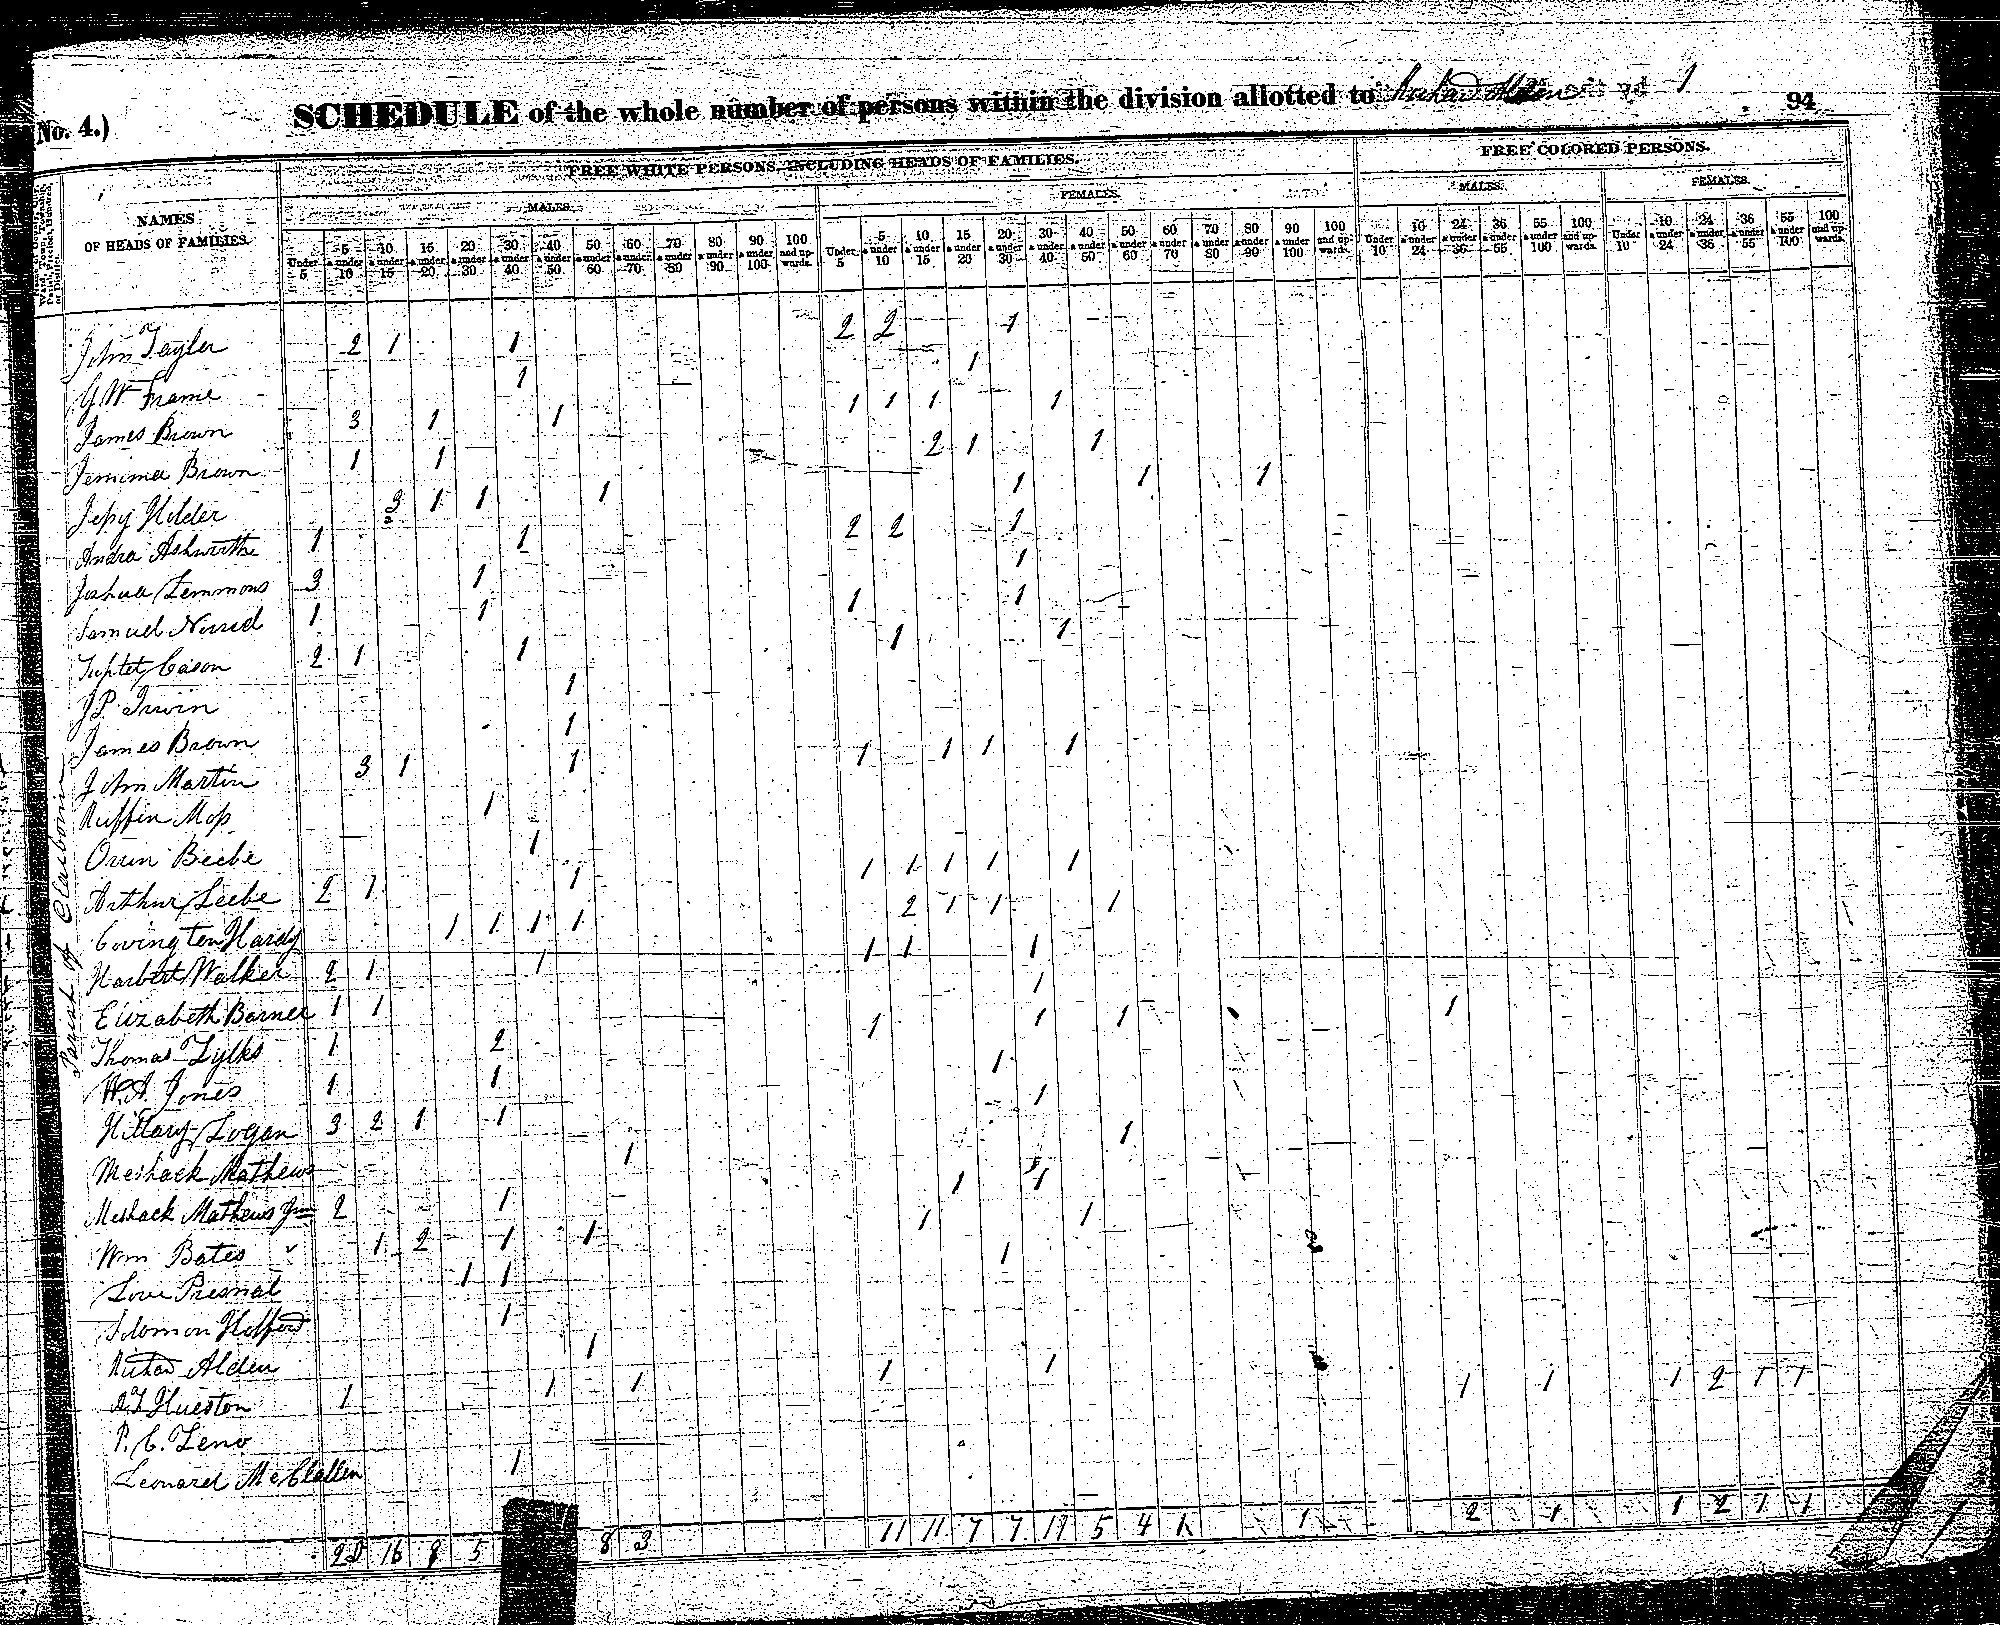 No. 4.)
SCHEDULE of the whole number of persons within the division allotted to
94
FREE WHITE PERSONS, INCLUDING HEADS OF FAMILIES.
FREE COLORED PERSONS.
MALES. FEMALES. MALES. FEMALES.
NAMES
OF HEADS OF FAMILIES.
Under 5 5 & under 10 10 & under 15 15 & under 20 20 & under 30 30 & under 40 40 & under 50 50 & under 60 60 & under 70 70 & under 80 80 & under 90 90 & under 100 100 and upwards.
Under 5 5 & under 10 10 & under 15 15 & under 20 20 & under 30 30 & under 40 40 & under 50 50 & under 60 60 & under 70 70 & under 80 80 & under 90 90 & under 100 100 and upwards.
Under 10 10 & under 24 24 & under 36 36 & under 55 55 & under 100 100 and upwards.
Under 10 10 & under 24 24 & under 36 36 & under 55 55 & under 100 100 and upwards.
Parish of Claiborne
John Tayler 2 1 1 2 2 1
G W Frame 1 1
James Brown 3 1 1 1 1 1 1
Jemima Brown 1 1 2 1 1
Jessy Hilder 3 1 1 1 1 1 1
Andra Ashworth 1 1 2 2 1
Joshua Lemmons 3 1 1
Samuel Norred 1 1 1 1
Cason 2 1 1 1 1
J P. Irwin 1
James Brown 1
John Martin 3 1 1 1 1 1 1
Ruffin Moss 1
Orrin Beebe 1
Arthur Leebe 2 1 1 1 1 1 1 1
Covington Hardy 1 1 1 1 2 1 1 1
Harbert Walker 2 1 1 1 1 1
Elizabeth Barnes 1 1 1
Thomas Lylks 1 2 1 1 1 1
W. A. Jones 1 1 1
Hillary Logan 3 2 1 1 1
Meshack Mathews 1 1
Meshack Mathews Jun 2 1 1 1
Wm Bates 1 2 1 1 1 1
Love Presnal 1 1 1
Solomon Hilford 1
Richard Alden 1
A. T. Hueston 1 1 1 1 1 1 1 1 2 1 1
P. C. Leno
Leonard McClellen 1
16 8 5 8 3 11 11 7 7 5 4 1 1 2 1 1 2 1 1